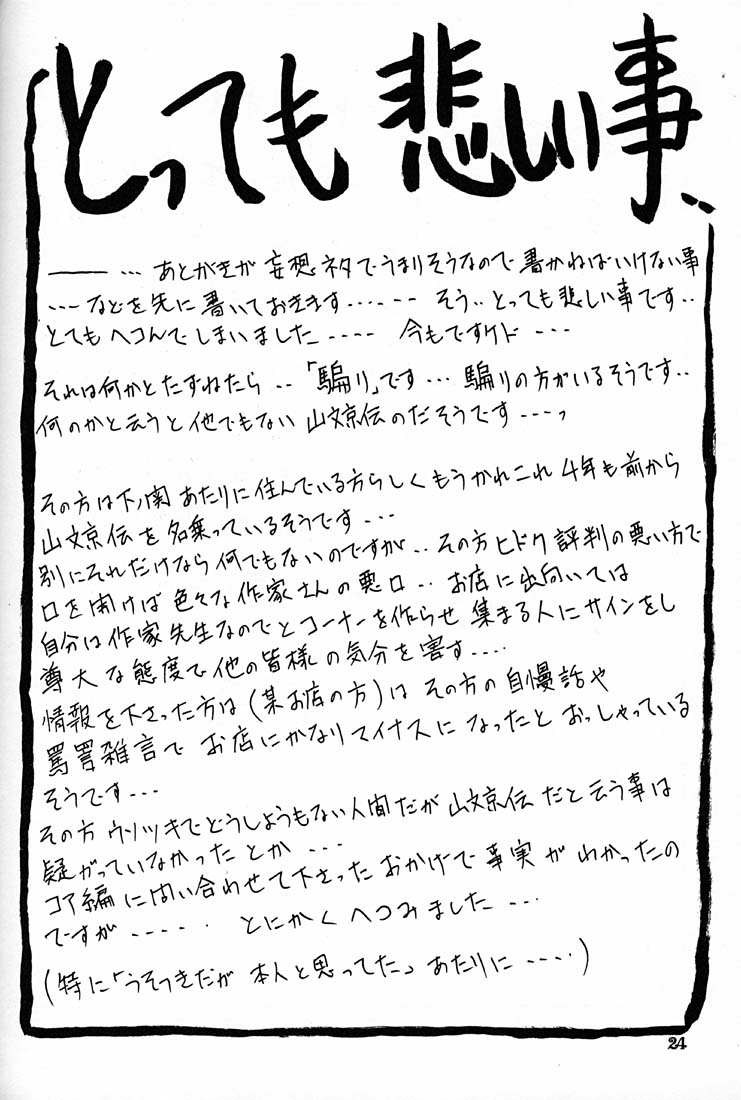 とっても悲しい事‥
―― … あとがきが 妄想ネタでうまりそうなので 書かねばいけない事
… などを先に書いておきます…… そう‥とっても悲しい事です‥
とてもヘコんでしまいました…… 今もですケド …
それは何かとたずねたら ‥「騙り」です… 騙りの方がいるそうです‥
何のかと云うと他でもない 山文京伝のだそうです…っ
その方は下ノ関あたりに住んでいる方らしくもうかれこれ 4年も前から
山文京伝を名乗っているそうです…
別にそれだけなら何でもないのですが‥その方ヒドク評判の悪い方で
口を開けば色々な作家さんの悪口‥ お店に出向いては
自分は作家先生なのでとコーナーを作らせ 集まる人にサインをし
尊大な態度で他の皆様の気分を害す……
情報を下さった方は(某お店の方)は その方の自慢話や
罵詈雑言で お店にかなりマイナスに なったとおっしゃっている
そうです…
その方 ウソツキでどうしようもない人間だが 山文京伝だと云う事は
疑がっていなかったとか …
コア編に問い合わせて下さった おかげで事実がわかったの
ですが……. とにかくへコみました …
(特に「うそつきだが 本人と思ってた」あたりに ……)
24